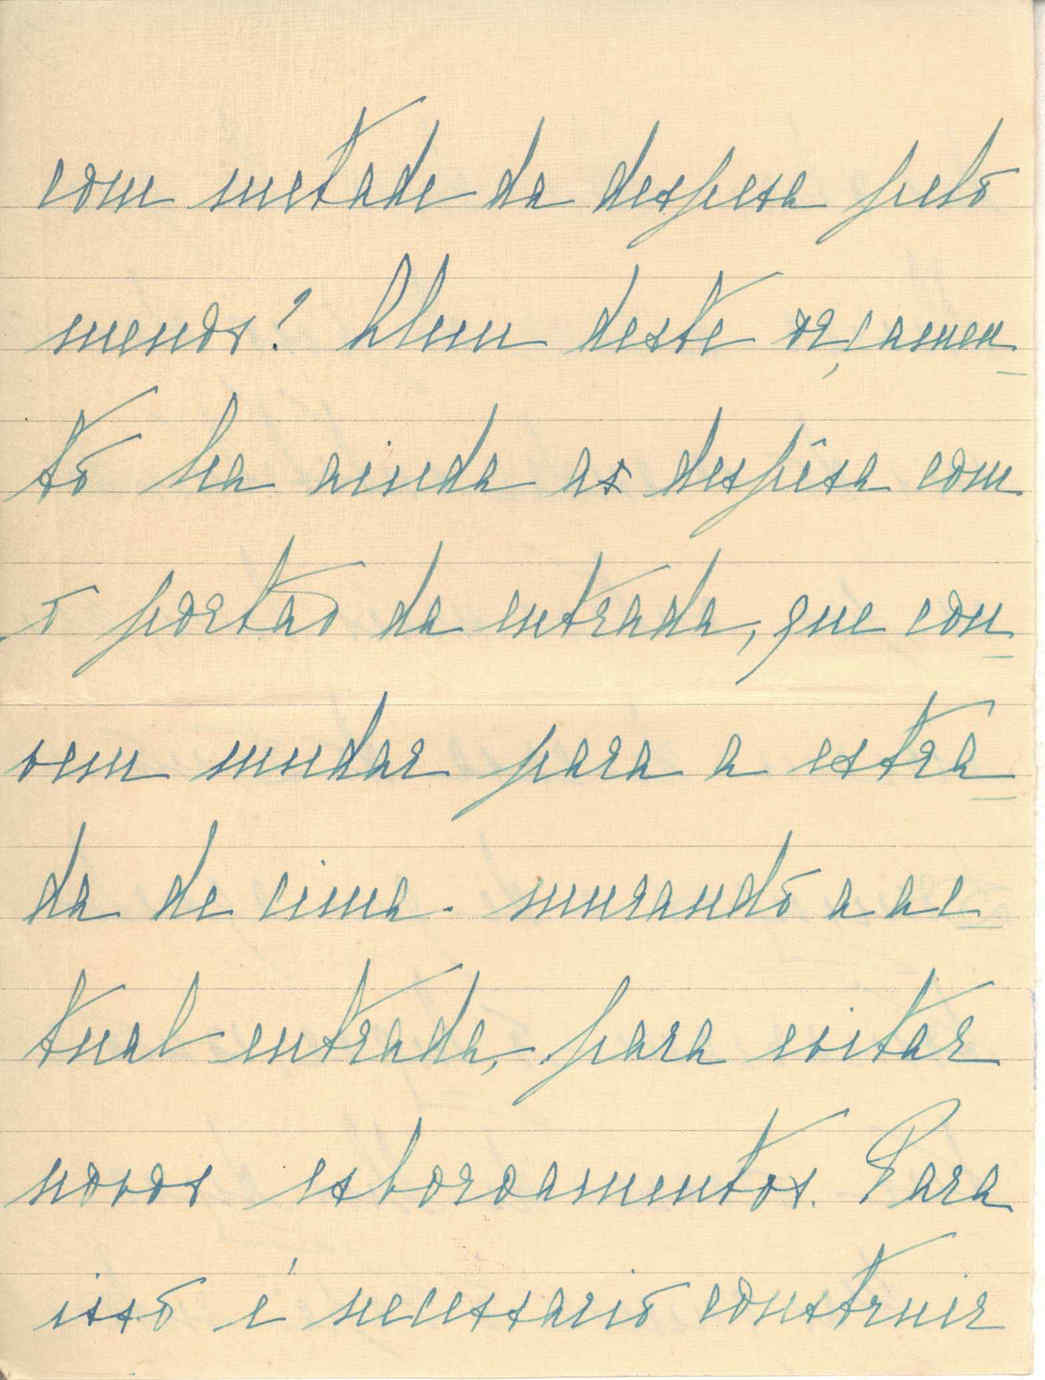 com metade da despesa pelo
menos? Alem deste orçamen
to ha ainda as despêsa com
o portão da entrada, que con
vem mudar para a estra
da de cima - murando a ac
tual entrada, para evitar
novos esboroamentos. Para
isso é necessario construir